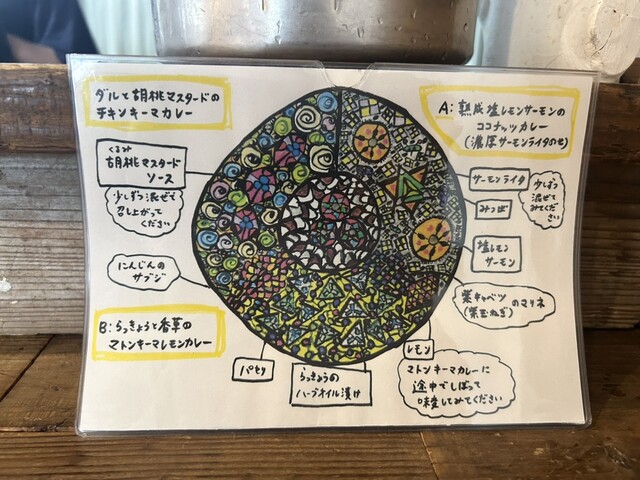 ダルと胡桃マスタードの
チキンキーマカレー
くるみ
胡桃マスタード
ソース
少しずつ混ぜて
召し上がって
ください
にんじんの
サブジ
B:らっきょうと香草の
マトンキーマレモンカレー
パセリ
らっきょうの
ハーブオイル漬け
A:熟成塩レモンサーモンの
ココナッツカレー
(濃厚サーモンライタのせ)
サーモンライタ
少しずつ
混ぜて
みてくだ
さい
みつば
塩レモン
サーモン
紫キャベツ
(紫玉ねぎ)
のマリネ
レモン
マトンキーマカレーに
途中でしぼって
味変してみてください